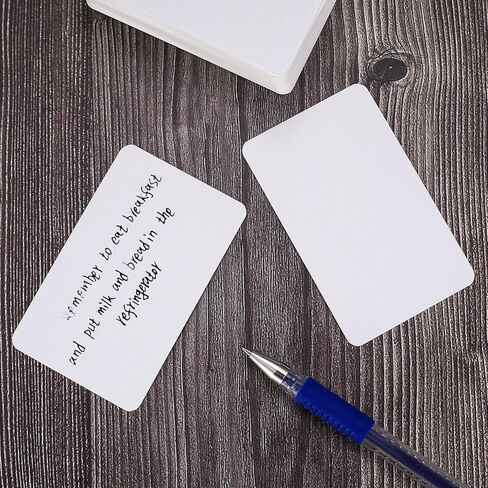 remember to eat breakfast
and put milk and bread in the
refringerator